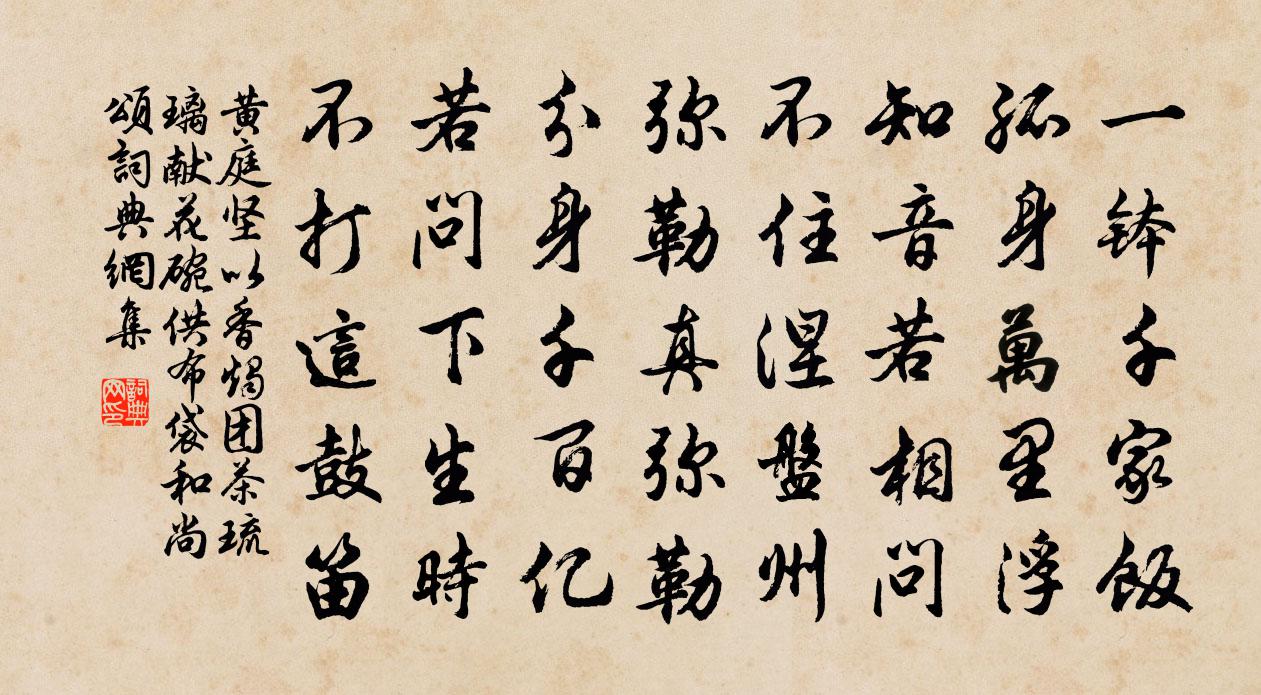 一钵千家飯
孤身萬里浮
知音若相問
不住涅盤州
弥勒真弥勒
分身千百亿
若問下生時
不打這鼓笛
黄庭坚以香燭团茶琉
璃献花碗供布袋和尚
頌詞典網集
詞典
网印